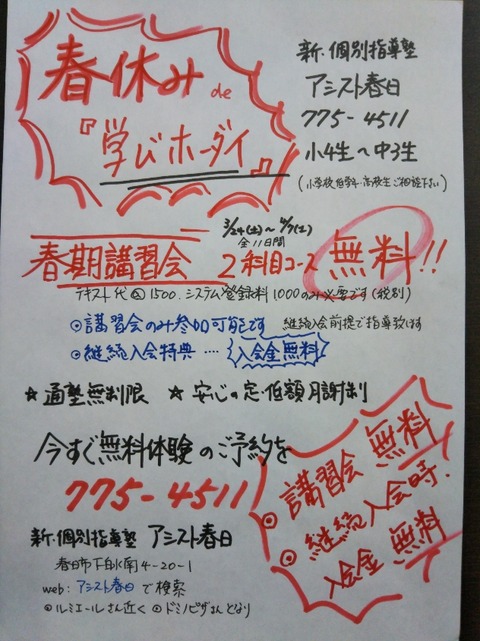 春休み de
『学びホーダイ』
新・個別指導塾
アシスト春日
775-4511
小4生〜中3生
(小学校低学年・高校生ご相談下さい)
3/24(土)〜4/7(土)
全11日間
春期講習会 2科目コース 無料!!
テキスト代 1500、システム登録料1000のみ必要です(税別)
◎講習会のみ参加可能です 継続入会前提で指導致します
◎継続入会特典 …… 入会金無料
☆通塾無制限 ☆安心の定・低額月謝制
今すぐ無料体験のご予約を
775-4511
◎講習会 無料
◎継続入会時、
入会金 無料
新・個別指導塾 アシスト春日
春日市下白水南4-20-1
web: アシスト春日 で検索
◎ルミエールさん近く ◎ドミノピザさんとなり